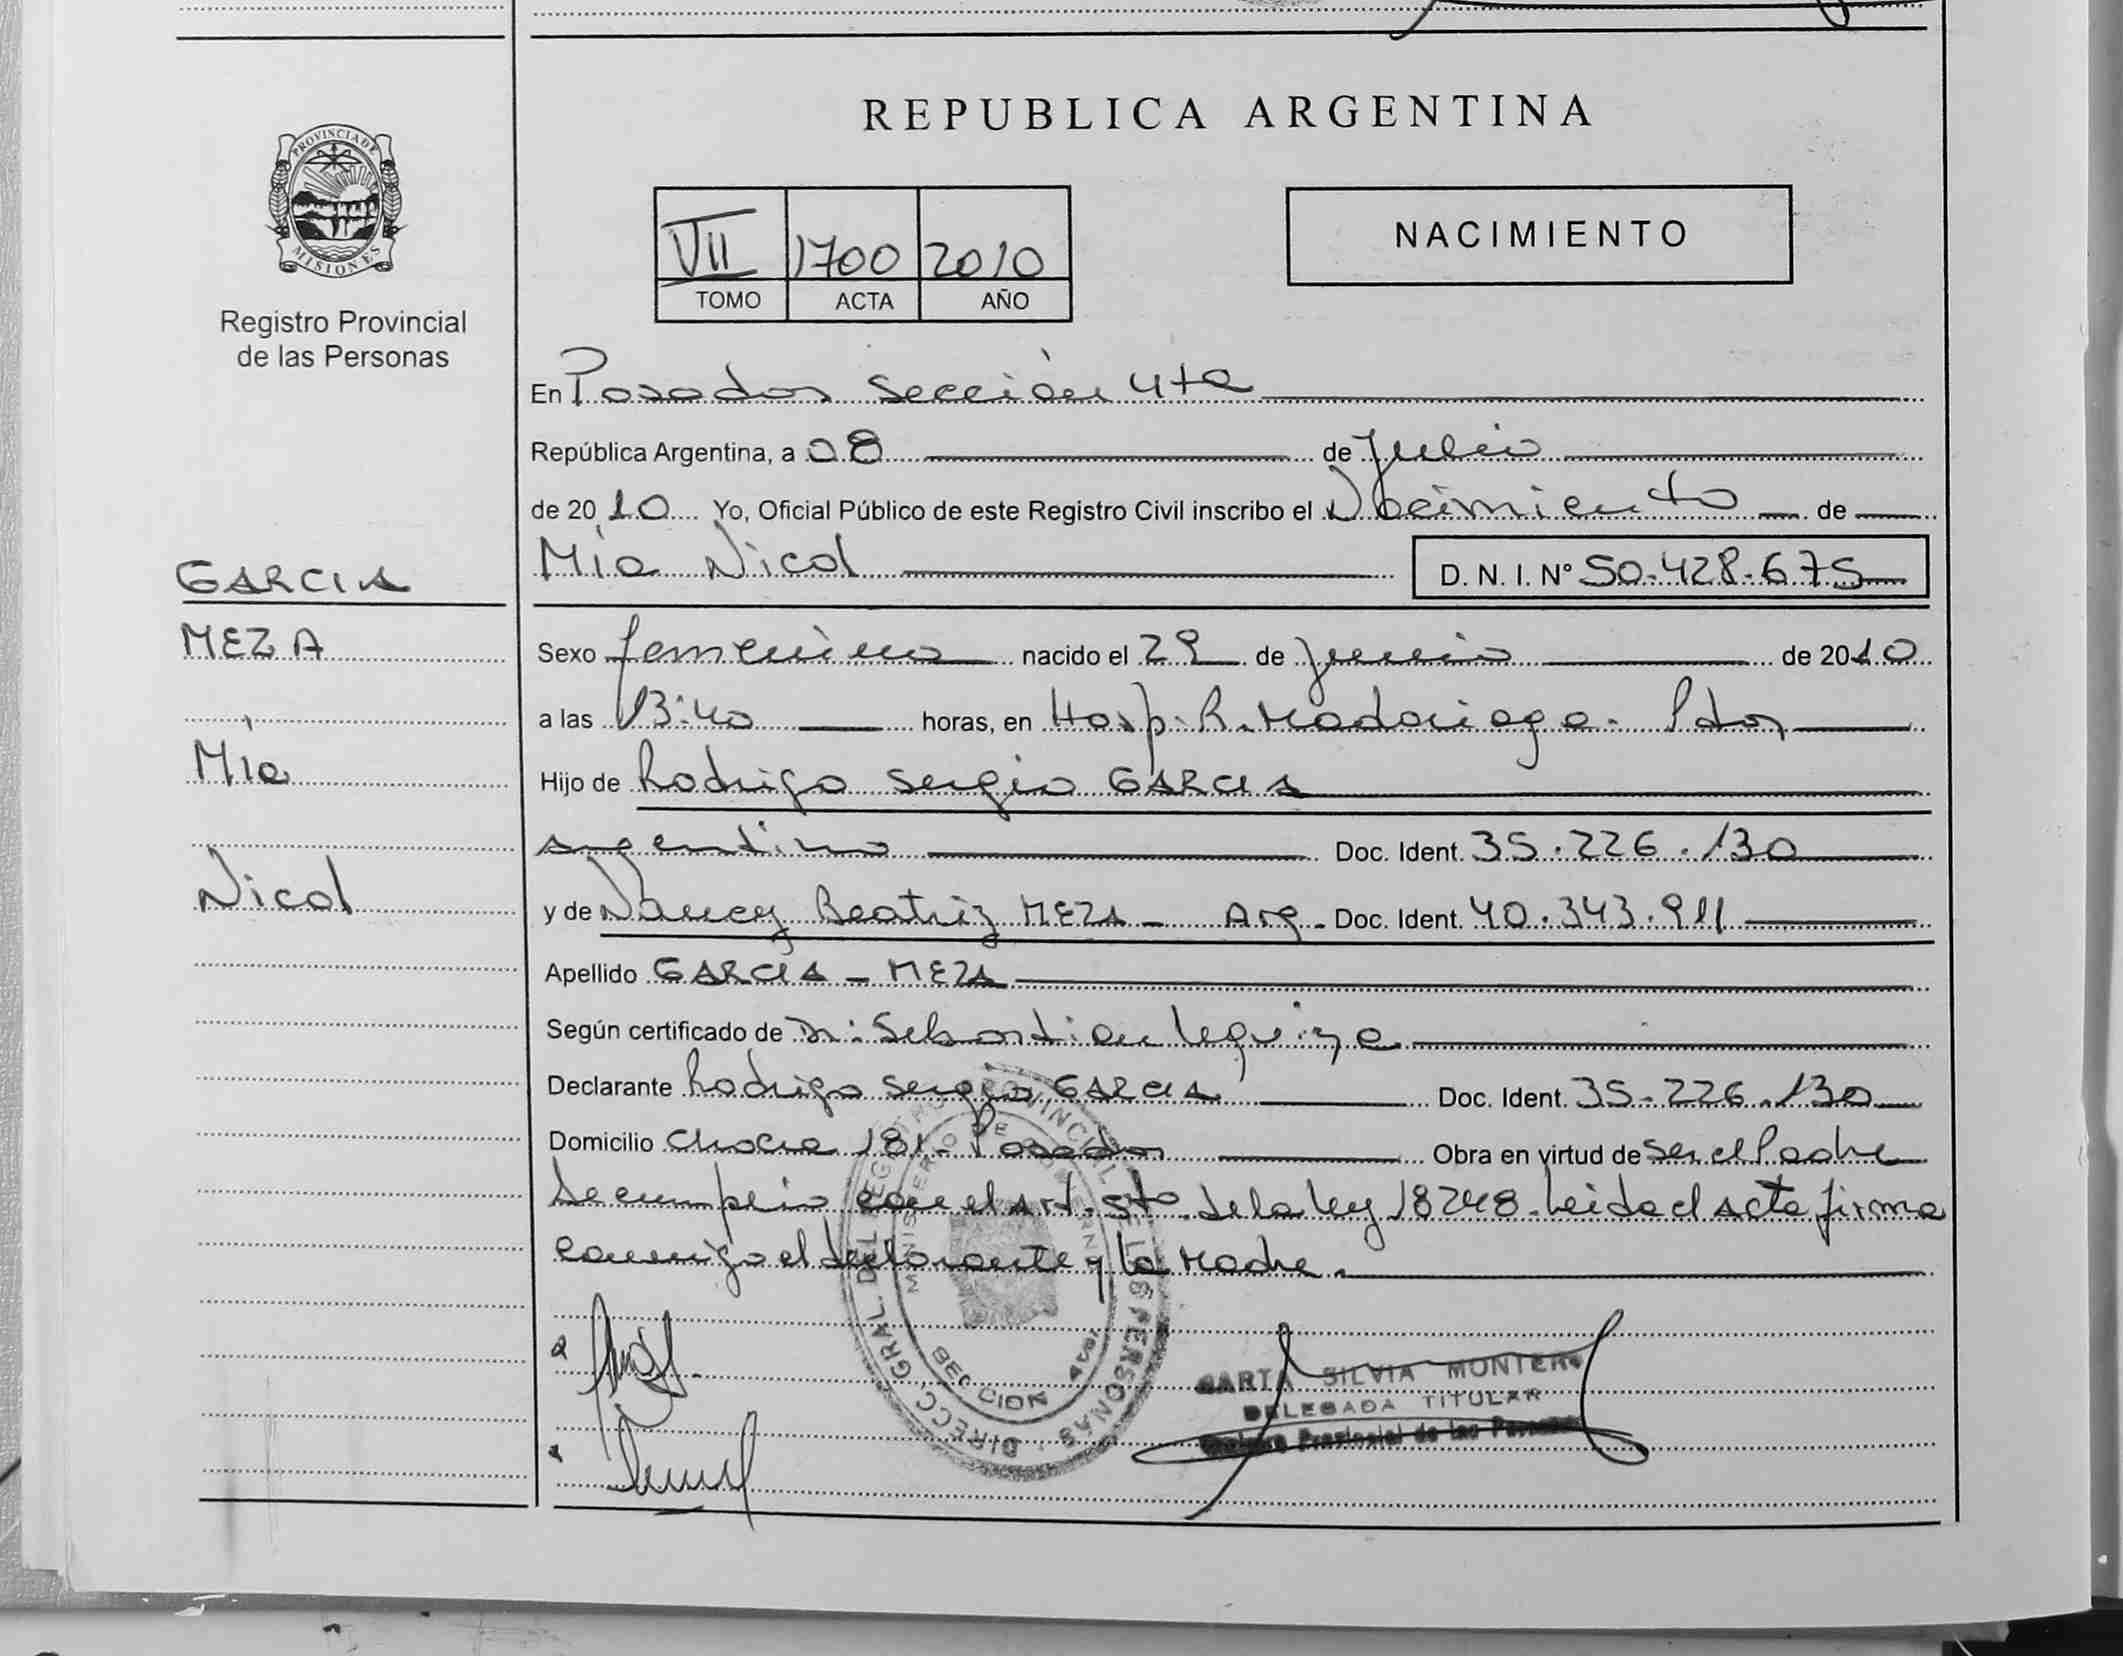 PROVINCIA DE
MISIONES
Registro Provincial
de las Personas
GARCIA
MEZA
Mía
Nicol
REPUBLICA ARGENTINA
VII 1700 2010
TOMO ACTA AÑO
NACIMIENTO
En Posadas sección 4ta
República Argentina, a 08 de Julio
de 2010 Yo, Oficial Público de este Registro Civil inscribo el Nacimiento de
Mía Nicol D. N. I. N° 50.428.675
Sexo femenino nacido el 29 de junio de 2010
a las 13:40 horas, en Hosp. R. Madariaga. Pdas
Hijo de Rodrigo Sergio GARCIA
argentino Doc. Ident. 35.226.130
y de Nancy Beatriz MEZA - Arg. Doc. Ident. 40.343.911
Apellido GARCIA - MEZA
Según certificado de Dr: Sebastian
Declarante Rodrigo Sergio GARCIA Doc. Ident. 35.226.130
Domicilio 181. Posadas Obra en virtud de ser el Padre
Se cumplio con el Art. 5to de la ley 18248. Leida el Acta firma
conmigo el declarante y la Madre.
DIRECC. GRAL. DEL REGISTRO PROVINCIAL DE LAS PERSONAS
MINISTERIO DE GOBIERNO
SECCION 4ta
SILVIA MONTERO
DELEGADA TITULAR
Registro Provincial de las Personas